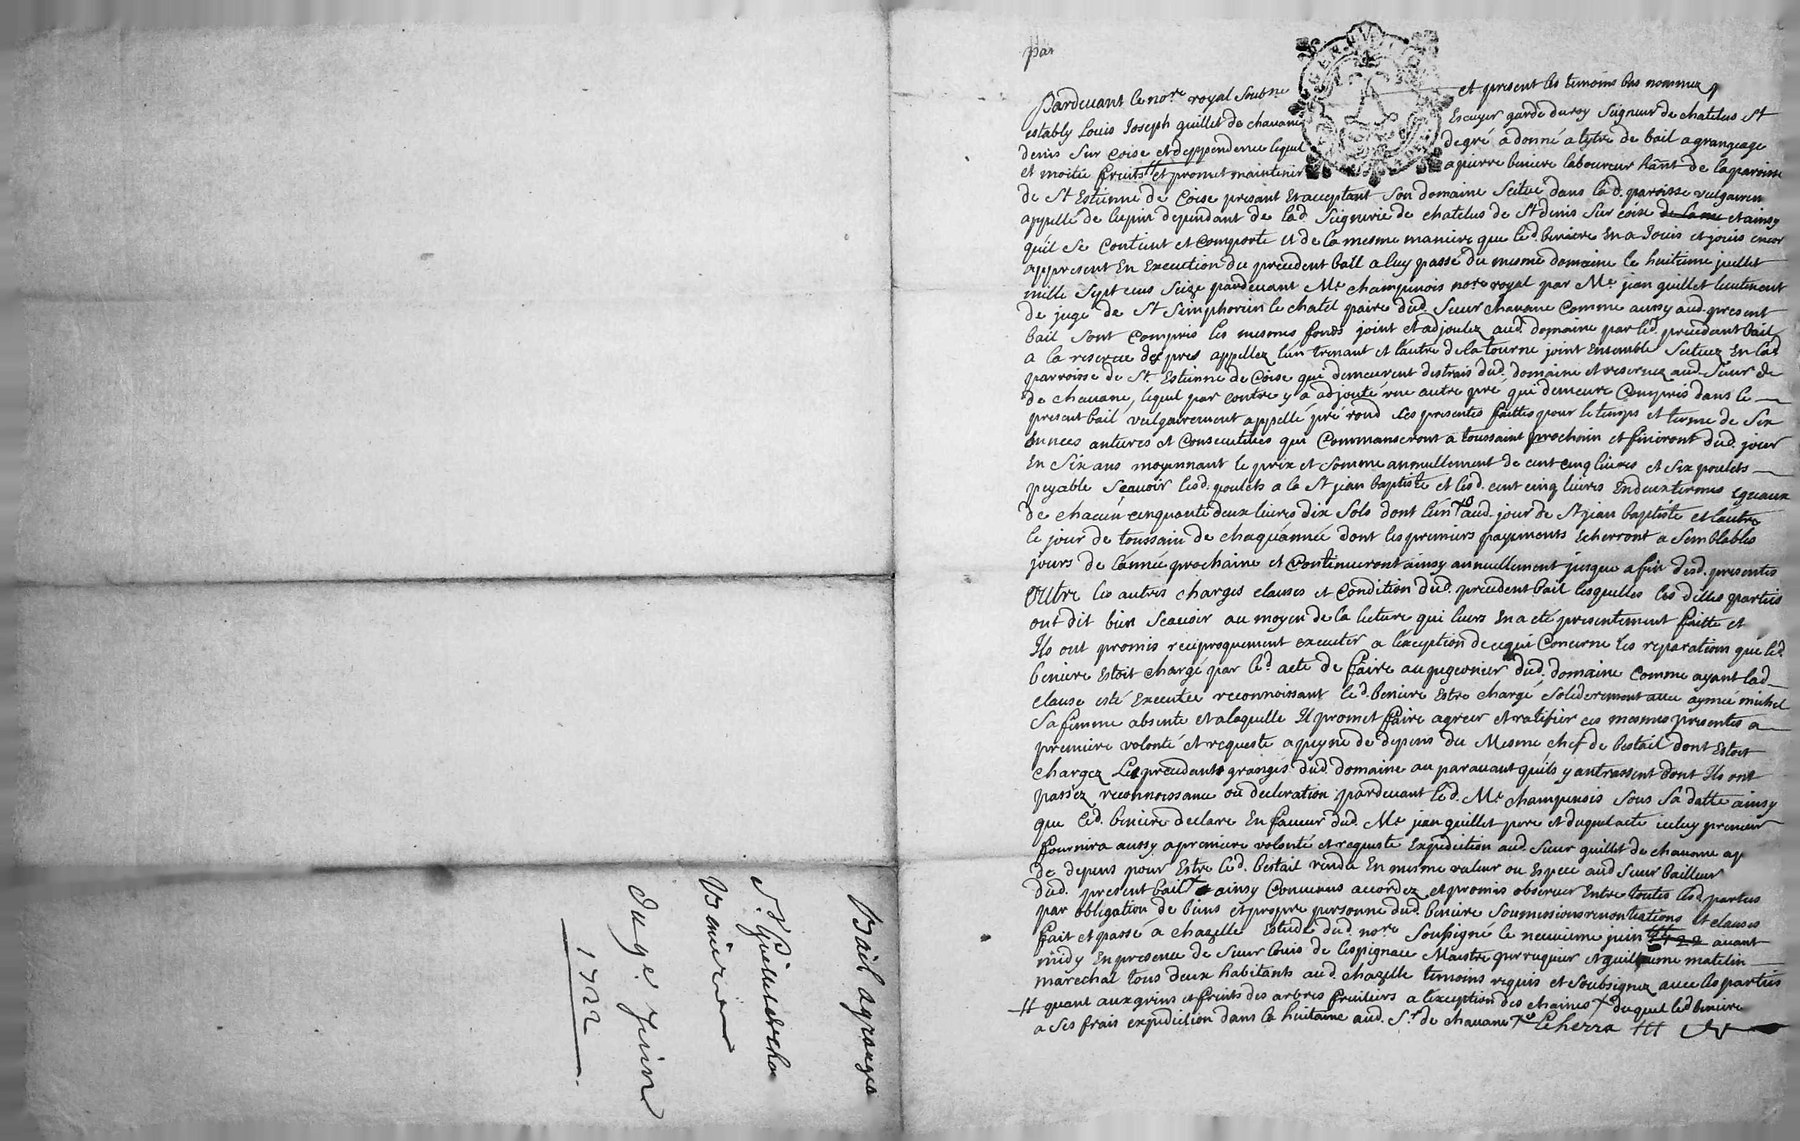 par
Pardevant le nore royal soubne et present les temoins bas nommez
estably Louis Joseph guillet de chavane Escuyer garde du roy seigneur de chatelus St
denis sur coise et deppendence lequel de gré a donné a tytre de bail a grangeage
et moitié fruits et promet maintenir a pierre beniere laboureur de la paroisse
de St Estienne de Coise presant et acceptant son domaine scitué dans lad. paroisse vulgairem
appellé de lepin dependant de lad. seignerie de chatelus de St denis sur coise et ainsy
quil se contient et comporte et de la mesme maniere que led. beniere en a jouis et jouis encor
appresent en execution du precedent bail a luy passé du mesme domaine le huitieme juillet
mille sept cens seize pardevant Me champenois nore royal par Me jean guillet lieutenent
de juge de St Simphorien le chatel paire dud. sieur chavane comme aussy aud. present
bail sont compris les mesmes fonds joint et adjoutez aud. domaine par led. precedant bail
a la reserve de pres appellez lun trenant et lautre de la tourne joint ensemble scituez en lad.
parroisse de St. Estienne de Coise qui demeurent distrais dud. domaine et reservez aud. sieur de
de chavane, lequel par contre y a adjouté une autre pré qui demeure compris dans le
present bail vulgairement appellé pré rond les presentes faittes pour le temps et terme de six
années antieres et consecutives qui commanseront a toussaint prochain et finiront dud. jour
en six ans moyennant le prix et somme annuellement de cent cinq livres et six poulets
peyable scavoir lesd. poulets a la St jean baptiste et lesd. cent cinq livres en deux termes egeaux
de chacun cinquante deux livres dix sols dont lun aud. jour de St jean baptiste et lautre
le jour de toussain de chaque année dont les premiers payements echerront a semblables
jours de lannée prochaine et continueront ainsy annuellement jusque a fin desd. presentes
outre les autres charges clauses et condition dud. precedent bail lesquelles les dittes parties
ont dit bien scavoir au moyen de la lecture qui leurs en a eté presentement faitte et
Ils ont promis reciproquement executer a lexception de ce qui concerne les reparations que led.
beniere estoit chargé par led. acte de faire au pigeonier dud. domaine comme ayant lad.
clause esté executée reconnoissant led. beniere estre chargé soliderement avec aymée michel
sa femme absente et a laquelle Il promet faire agreer et ratifier ces mesmes presentes a
premiere volonté et requeste a peyne de depens du mesme chef de bestail dont estoit
chargez les precedants grangés dud. domaine au paravant quils y antrassent dont Ils ont
passez reconnoissance ou decleration pardevant led. Me champenois sous sa datte ainsy
que led. beniere declare en faveur dud. Me jean guillet pere et duquel acte iceluy preneur
fournira aussy a premiere volonté et requeste expedition aud. sieur guillet de chavane ap
de depens pour estre led. bestail rendu en mesme valeur ou espece aud. sieur bailleur
dud. present bail ainsy convenus accordez et promis observer entre toutes lesd. parties
par obligation de biens et propre personne dud. beniere soumissions renontiations et clauses
fait et passé a chazelle estude dud. nore soussigné le neuvieme juin 1722 avant
midy en presence de sieur louis de lespignace maistre perruquier et guillaume matelin
marechal tous deux habitants aud. chazelle temoins requis et soubsignez avec les parties
quant aux grins et fruits des arbres fruitiers a lexception des chaines duquel led. beniere
a ses frais expedition dans la huitaine aud. Sr. de chavane
Bail a grange
Sr Guillet de cha
Beniere
Du 9e Juin
1722